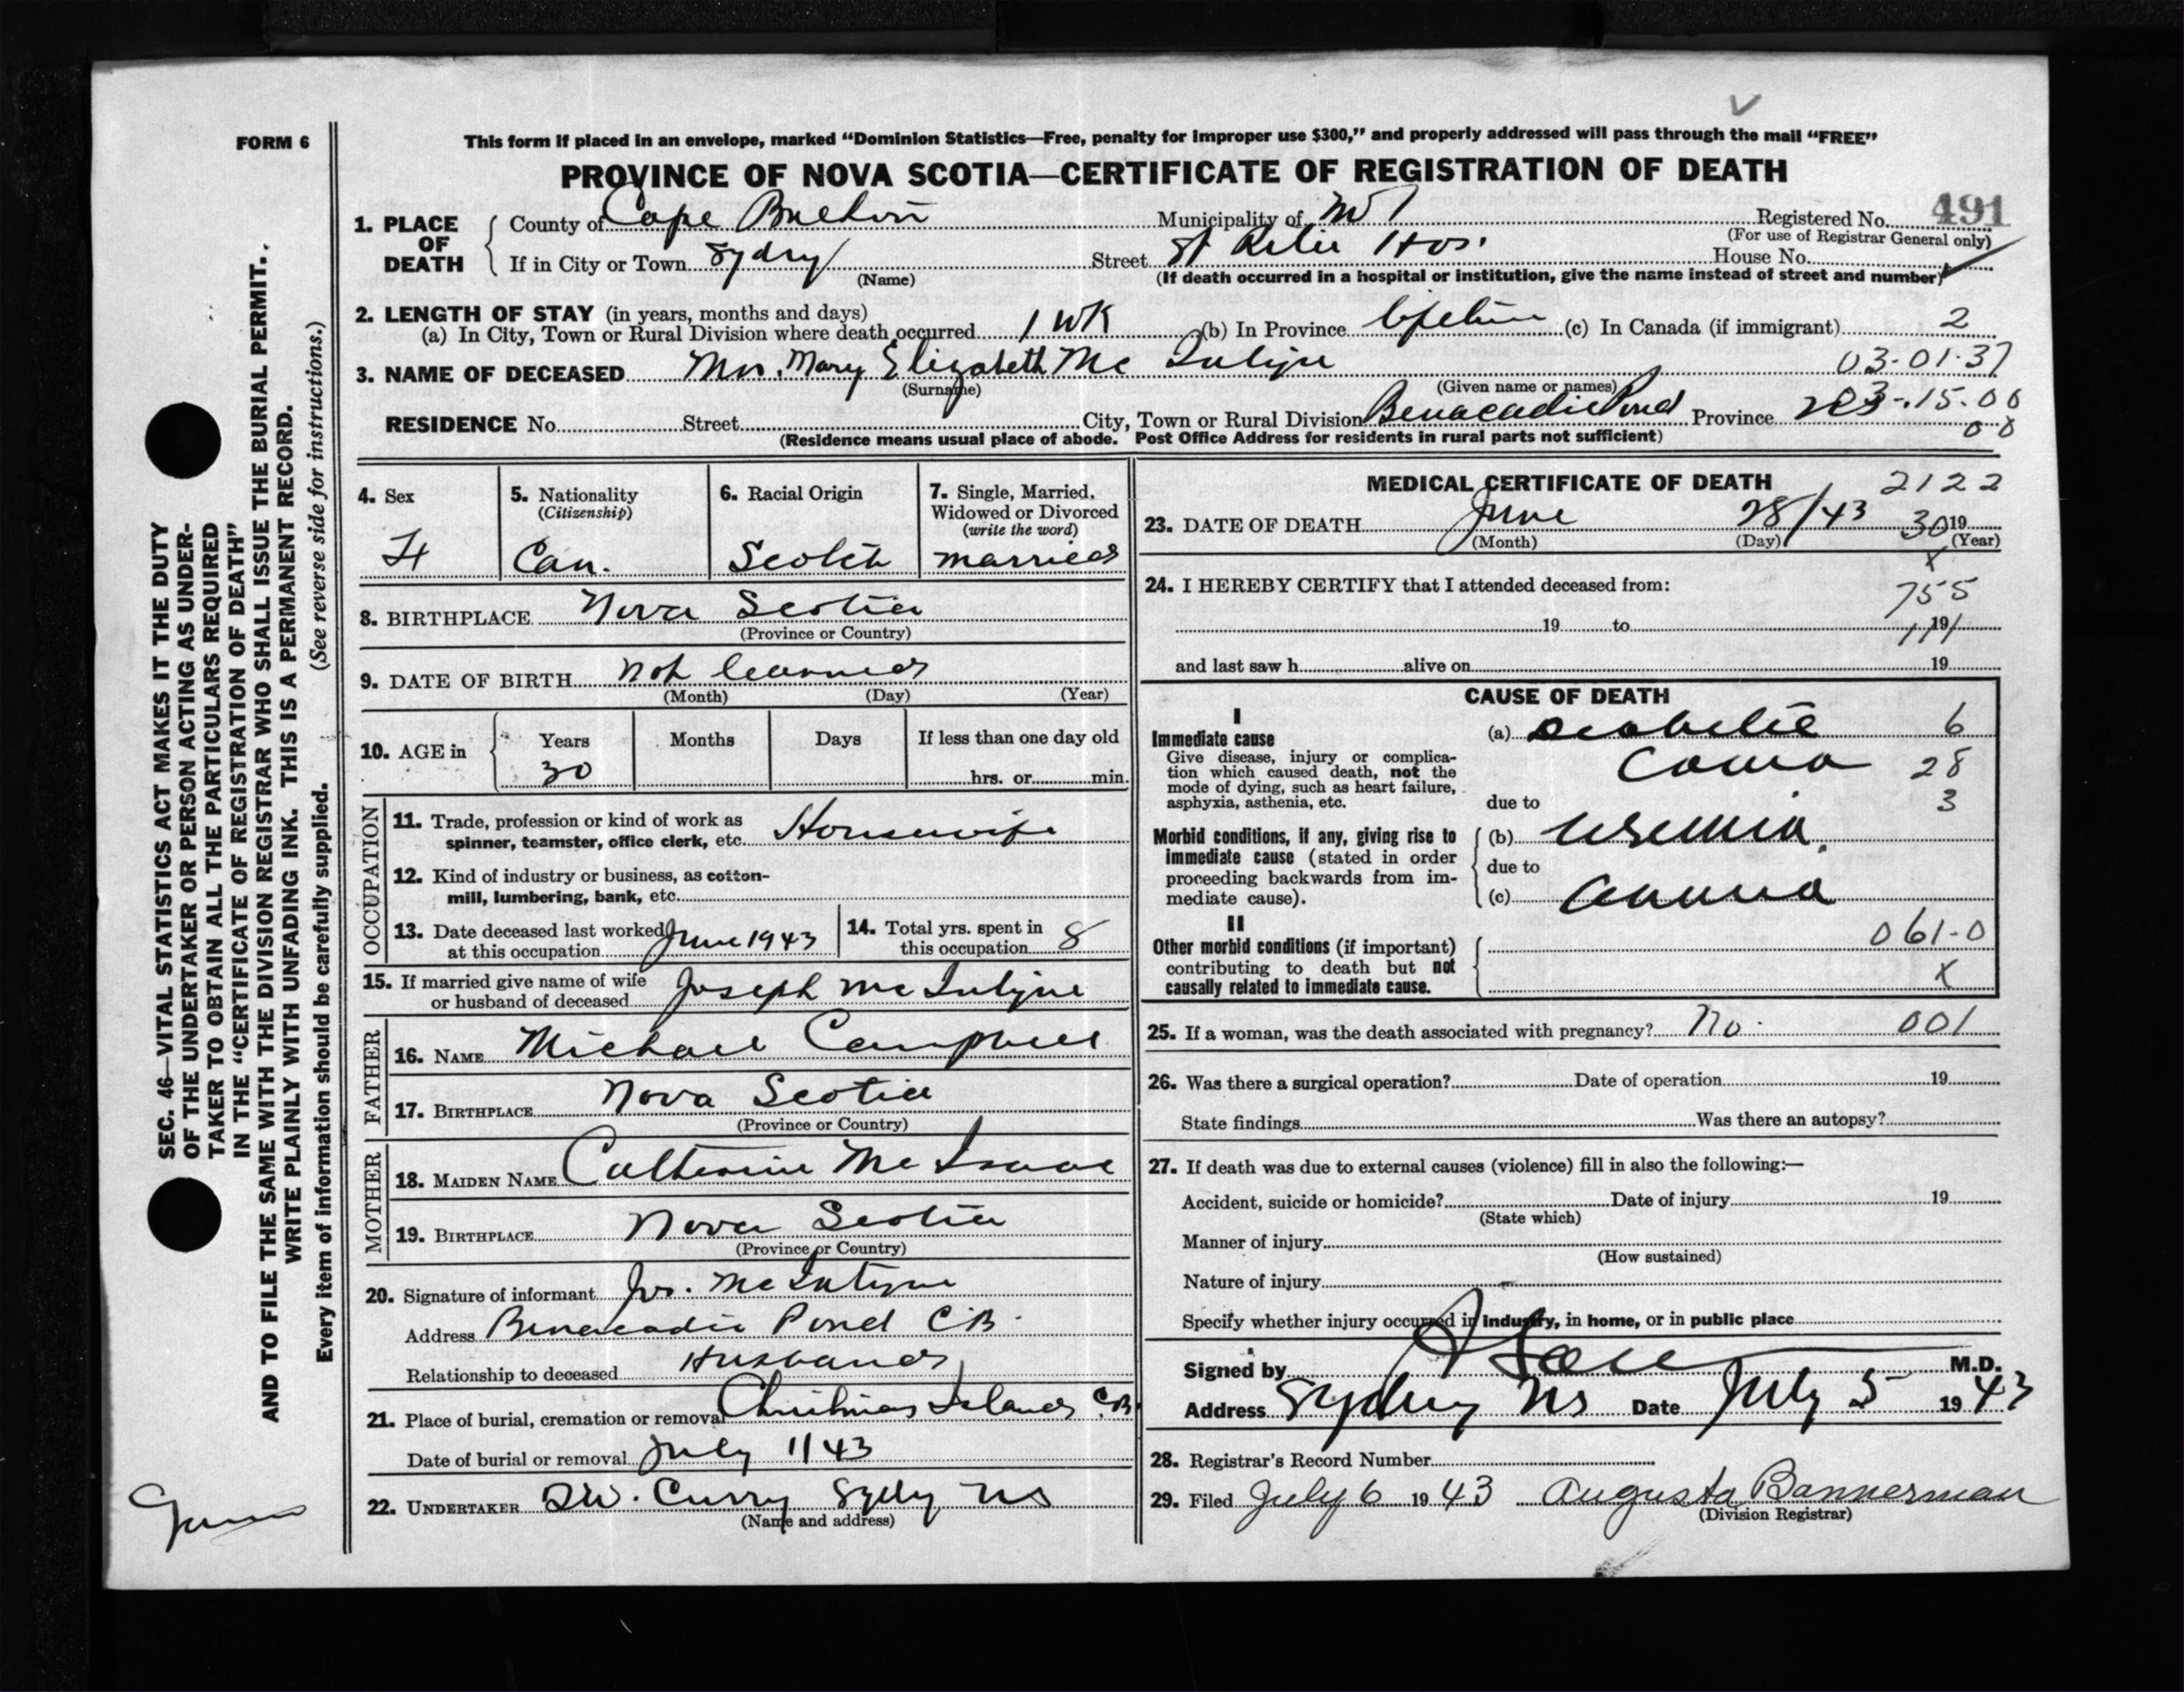 FORM 6
This form if placed in an envelope, marked “Dominion Statistics—Free, penalty for improper use $300,” and properly addressed will pass through the mail “FREE”
PROVINCE OF NOVA SCOTIA—CERTIFICATE OF REGISTRATION OF DEATH
SEC. 46—VITAL STATISTICS ACT MAKES IT THE DUTY
OF THE UNDERTAKER OR PERSON ACTING AS UNDER-
TAKER TO OBTAIN ALL THE PARTICULARS REQUIRED
IN THE “CERTIFICATE OF REGISTRATION OF DEATH”
AND TO FILE THE SAME WITH THE DIVISION REGISTRAR WHO SHALL ISSUE THE BURIAL PERMIT.
WRITE PLAINLY WITH UNFADING INK. THIS IS A PERMANENT RECORD.
Every item of information should be carefully supplied. (See reverse side for instructions.)
1. PLACE OF DEATH
County of Cape Breton Municipality of Registered No. 491
(For use of Registrar General only)
If in City or Town Sydney Street St Hos. House No.
(Name) (If death occurred in a hospital or institution, give the name instead of street and number)
2. LENGTH OF STAY (in years, months and days)
(a) In City, Town or Rural Division where death occurred 1 WK (b) In Province lifetime (c) In Canada (if immigrant) 2
3. NAME OF DECEASED Mrs. Mary Elizabeth Mc Intyre 03-01-37
(Surname) (Given name or names)
RESIDENCE No. Street City, Town or Rural Division Benacadie Pond Province 203-15-00
(Residence means usual place of abode. Post Office Address for residents in rural parts not sufficient) 00
4. Sex
F
5. Nationality
(Citizenship)
Can.
6. Racial Origin
Scotch
7. Single, Married,
Widowed or Divorced
(write the word)
married
8. BIRTHPLACE Nova Scotia
(Province or Country)
9. DATE OF BIRTH not learned
(Month) (Day) (Year)
10. AGE in Years Months Days If less than one day old
30 hrs. or min.
OCCUPATION
11. Trade, profession or kind of work as
spinner, teamster, office clerk, etc. Housewife
12. Kind of industry or business, as cotton-
mill, lumbering, bank, etc.
13. Date deceased last worked
at this occupation June 1943
14. Total yrs. spent in
this occupation 8
15. If married give name of wife
or husband of deceased Joseph Mc Intyre
FATHER
16. NAME Michael Campbell
17. BIRTHPLACE Nova Scotia
(Province or Country)
MOTHER
18. MAIDEN NAME Catherine Mc Isaac
19. BIRTHPLACE Nova Scotia
(Province or Country)
20. Signature of informant Jos. McIntyre
Address Benacadie Pond C.B.
Relationship to deceased Husband
21. Place of burial, cremation or removal Christmas Island C.B
Date of burial or removal July 1/43
22. UNDERTAKER Curry Sydney NS
(Name and address)
MEDICAL CERTIFICATE OF DEATH 2122
23. DATE OF DEATH June 28/43 30 19
(Month) (Day) (Year)
X
24. I HEREBY CERTIFY that I attended deceased from: 755
19 to 19
111
and last saw h alive on 19
CAUSE OF DEATH
I
Immediate cause
Give disease, injury or complica-
tion which caused death, not the
mode of dying, such as heart failure,
asphyxia, asthenia, etc.
(a) Diabetic 6
Coma 28
due to 3
Morbid conditions, if any, giving rise to
immediate cause (stated in order
proceeding backwards from im-
mediate cause).
(b) Uremia
due to
(c)
II
Other morbid conditions (if important)
contributing to death but not
causally related to immediate cause.
061-0
X
25. If a woman, was the death associated with pregnancy? No. 001
26. Was there a surgical operation? Date of operation 19
State findings Was there an autopsy?
27. If death was due to external causes (violence) fill in also the following:—
Accident, suicide or homicide? Date of injury 19
(State which)
Manner of injury
(How sustained)
Nature of injury
Specify whether injury occurred in industry, in home, or in public place
Signed by M.D.
Address Sydney NS Date July 5 1943
28. Registrar’s Record Number
29. Filed July 6 1943 Augusta Bannerman
(Division Registrar)